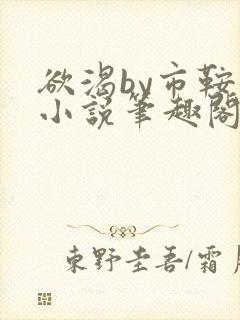 欲渴by市鞍
小说笔趣阁
東野圭吾/霜月